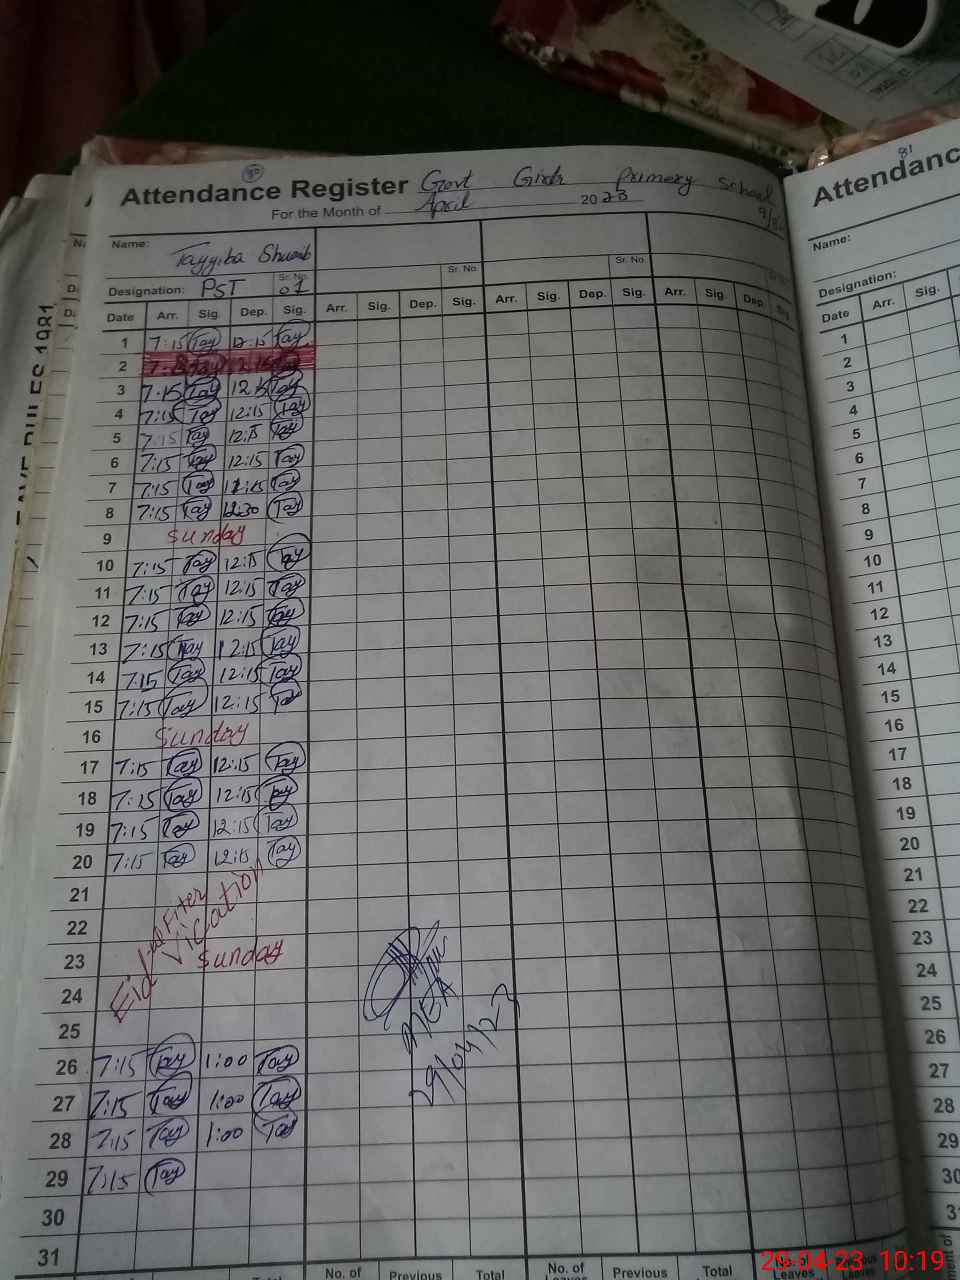 80
Attendance Register Govt Girls Primary School
For the Month of April 2023
Name: Tayyiba Shuaib
Designation: PST Sr. No. 01 Sr. No. Sr. No.
Date Arr. Sig. Dep. Sig. Arr. Sig. Dep. Sig. Arr. Sig. Dep. Sig. Arr. Sig. Dep. Sig.
1 7:15 Tay 12:15 Tay
2
3 7:15 Tay 12:15 Tay
4 7:15 Tay 12:15 Tay
5 7:15 Tay 12:15 Tay
6 7:15 Tay 12:15 Tay
7 7:15 Tay 12:15 Tay
8 7:15 Tay 12:30 Tay
9 Sunday
10 7:15 Tay 12:15 Tay
11 7:15 Tay 12:15 Tay
12 7:15 Tay 12:15 Tay
13 7:15 Tay 12:15 Tay
14 7:15 Tay 12:15 Tay
15 7:15 Tay 12:15 Tay
16 Sunday
17 7:15 Tay 12:15 Tay
18 7:15 Tay 12:15 Tay
19 7:15 Tay 12:15 Tay
20 7:15 Tay 12:15 Tay
21
22
Eid ul Fiter
Vication
23 Sunday
24
25
MEA
29/04/23
26 7:15 Tay 1:00 Tay
27 7:15 Tay 1:00 Tay
28 7:15 Tay 1:00 Tay
29 7:15 Tay
30
31
No. of Previous Total No. of Previous Total
Leaves
81
Attendanc
Name:
Designation:
Date Arr. Sig.
1
2
3
4
5
6
7
8
9
10
11
12
13
14
15
16
17
18
19
20
21
22
23
24
25
26
27
28
29
30
29-04-23 10:19